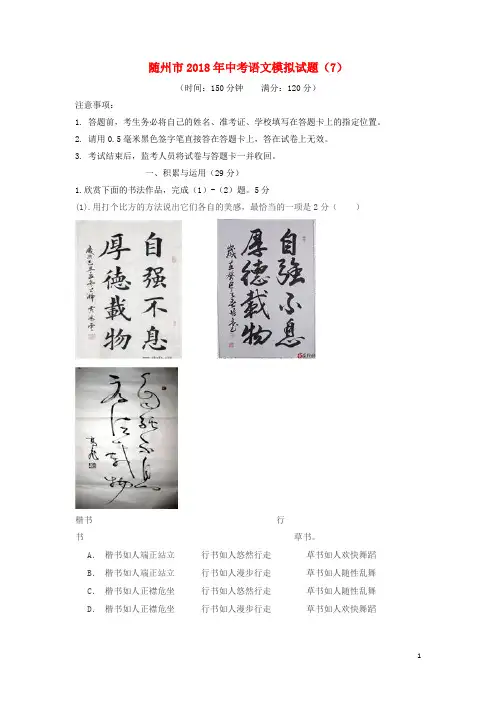 随州市2018年中考语文模拟试题（7）
（时间：150分钟 满分：120分）
注意事项：
1. 答题前，考生务必将自己的姓名、准考证、学校填写在答题卡上的指定位置。
2. 请用0.5毫米黑色签字笔直接答在答题卡上，答在试卷上无效。
3. 考试结束后，监考人员将试卷与答题卡一并收回。
一、积累与运用（29分）
1.欣赏下面的书法作品，完成（1）-（2）题。5分
(1).用打个比方的方法说出它们各自的美感，最恰当的一项是2分（ ）
自强不息
厚德載物
自強不息
厚德載物
自强不息
厚德载物
楷书 行
书 草书。
A. 楷书如人端正站立 行书如人悠然行走 草书如人欢快舞蹈
B. 楷书如人端正站立 行书如人漫步行走 草书如人随性乱舞
C. 楷书如人正襟危坐 行书如人悠然行走 草书如人随性乱舞
D. 楷书如人正襟危坐 行书如人漫步行走 草书如人欢快舞蹈
1